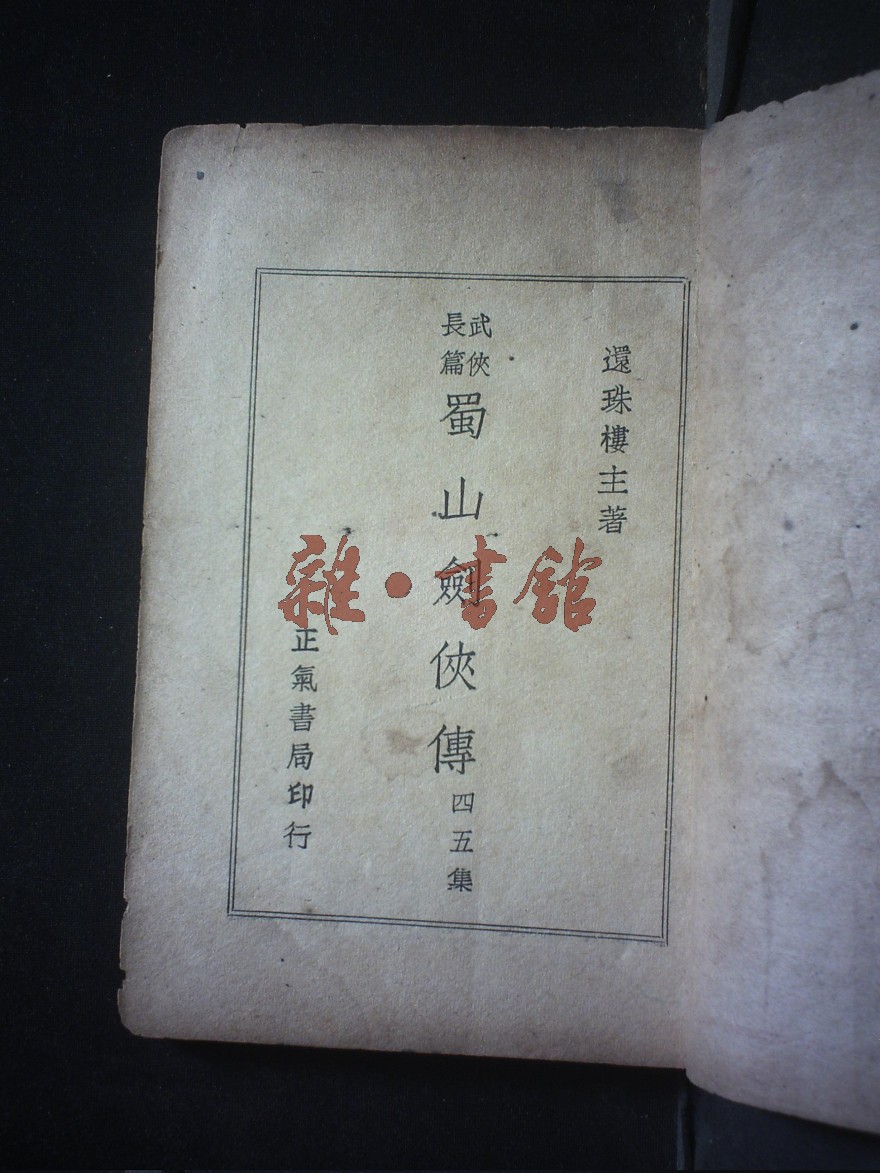 還珠樓主著
武俠
長篇
蜀山劍俠傳
四五集
正氣書局印行
雜·書館